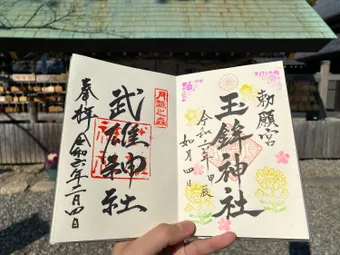 勅願宮
玉鉾神社
令和六年 甲辰
如月四日
月読之森
武雄神社
奉拝 令和六年二月四日